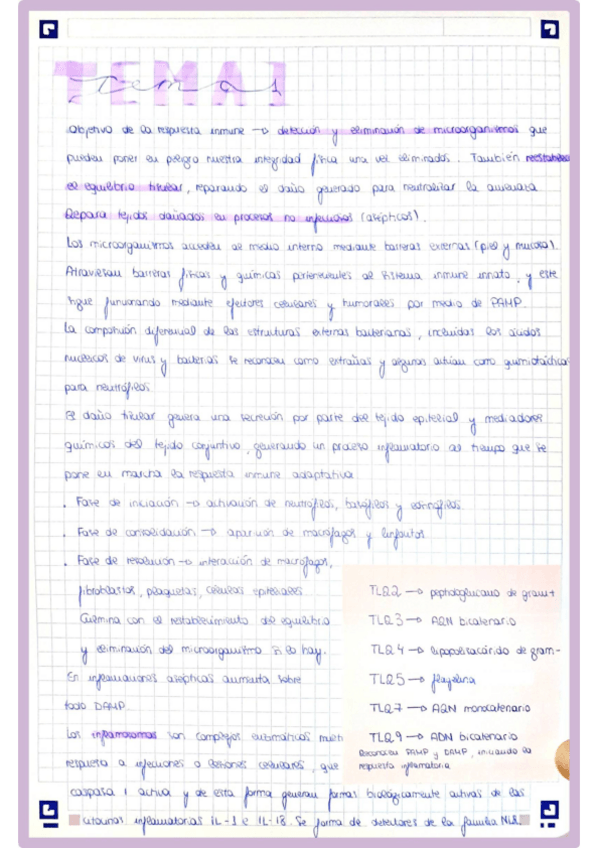 TEMA 1
Temas 1
Objetivo de la respuesta inmune → detección y eliminación de microorganismos que
pueden poner en peligro nuestra integridad física una vez eliminados. También restablece
el equilibrio tisular, reparando el daño generado para neutralizar la amenaza
Repara tejidos dañados en procesos no infecciosos (asépticos).
Los microorganismos acceden al medio interno mediante barreras externas (piel y mucosa).
Atraviesan barreras físicas y químicas pertenecientes al sistema inmune innato, y este
sigue funcionando mediante efectores celulares y humorales por medio de PAMP.
La composición diferencial de las estructuras externas bacterianas, incluidas los ácidos
nucleicos de virus y bacterias se reconocen como extrañas y algunas actúan como quimiotácticas
para neutrófilos.
El daño tisular genera una secreción por parte del tejido epitelial y mediadores
químicos del tejido conjuntivo, generando un proceso inflamatorio al tiempo que se
pone en marcha la respuesta inmune adaptativa.
. Fase de iniciación → activación de neutrófilos, basófilos y eosinófilos
. Fase de consolidación → aparición de macrófagos y linfocitos
. Fase de resolución → interacción de macrófagos,
fibroblastos, plaquetas, células epiteliales
Culmina con el restablecimiento del equilibrio
y eliminación del microorganismo si lo hay.
En inflamaciones asépticas aumenta sobre
todo DAMP.
Los inflamasomas son complejos enzimáticos
respuesta a infecciones o lesiones celulares, que
caspasa 1 activa y de esta forma generan formas biológicamente activas de las
citocinas inflamatorias IL-1 e IL-18. Se forma de detectores de la familia NLR.
TLR2 → peptidoglucano de gram+
TLR3 → ARN bicatenario
TLR4 → lipopolisacárido de gram-
TLR5 → flagelina
TLR7 → ARN monocatenario
TLR9 → ADN bicatenario
Reconocen PAMP y DAMP, iniciando la
respuesta inflamatoria